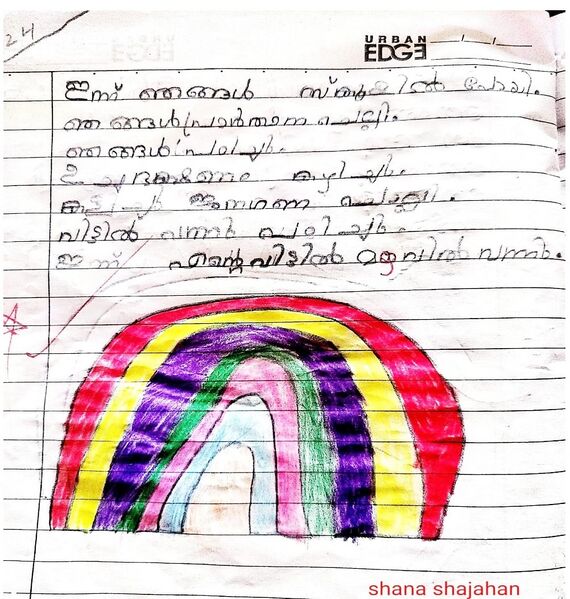 24
URBAN
EDGE
ഇന്ന് ഞങ്ങൾ സ്കൂളിൽ പോയി.
ഞങ്ങൾ പ്രാർത്ഥന ചൊല്ലി.
ഞങ്ങൾ പഠിച്ചു.
ഉച്ചഭക്ഷണം കഴിച്ചു.
ജനഗണ ചൊല്ലി.
വീട്ടിൽ വന്നു പഠിച്ചു.
ഇന്ന് എന്റെ വീട്ടിൽ മഴവിൽ വന്നു.
shana shajahan